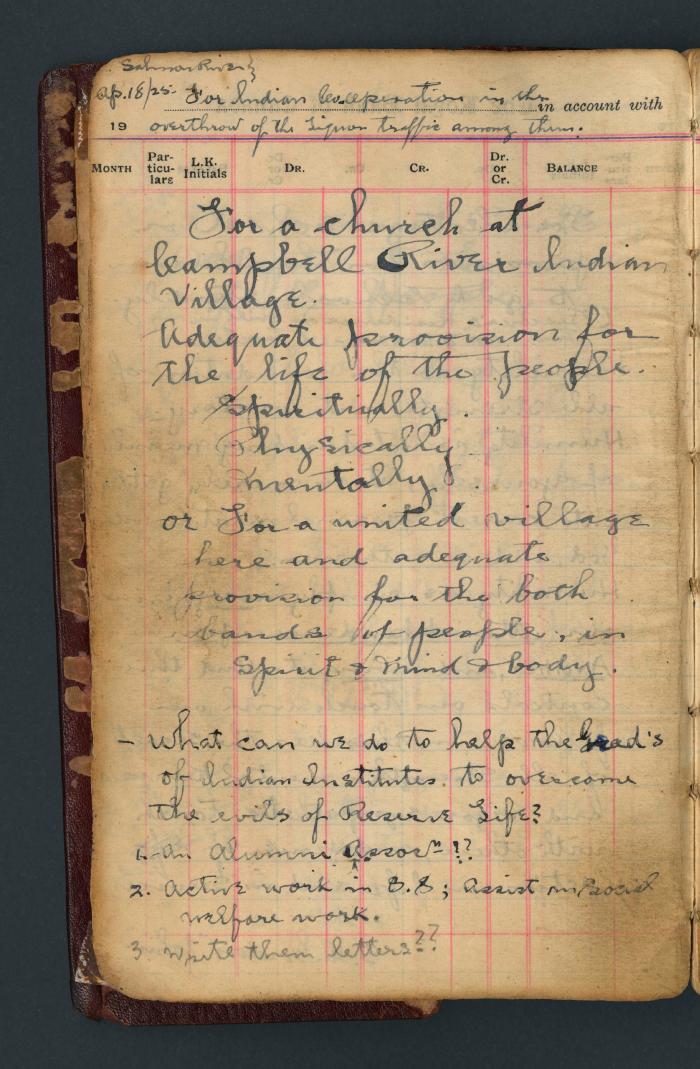 Salmon River}
Ap. 18/25- For Indian Co-operation in the in account with
19 overthrow of the Liquor traffic among them.
MONTH Par-ticu-lars L.K. Initials DR. CR. Dr. or Cr. BALANCE
For a church at
Campbell River Indian
Village.
Adequate provision for
the life of the people.
Spiritually.
Physically
mentally.
or For a united village
here and adequate
provision for the both
bands of people, in
Spirit & Mind & body.
- What can we do to help the Grad's
of Indian Institutes to overcome
the evils of Reserve Life?
1. An Alumni Assosn !??
2. Active work in S.S; Assist in social
welfare work.
3 write them letters??